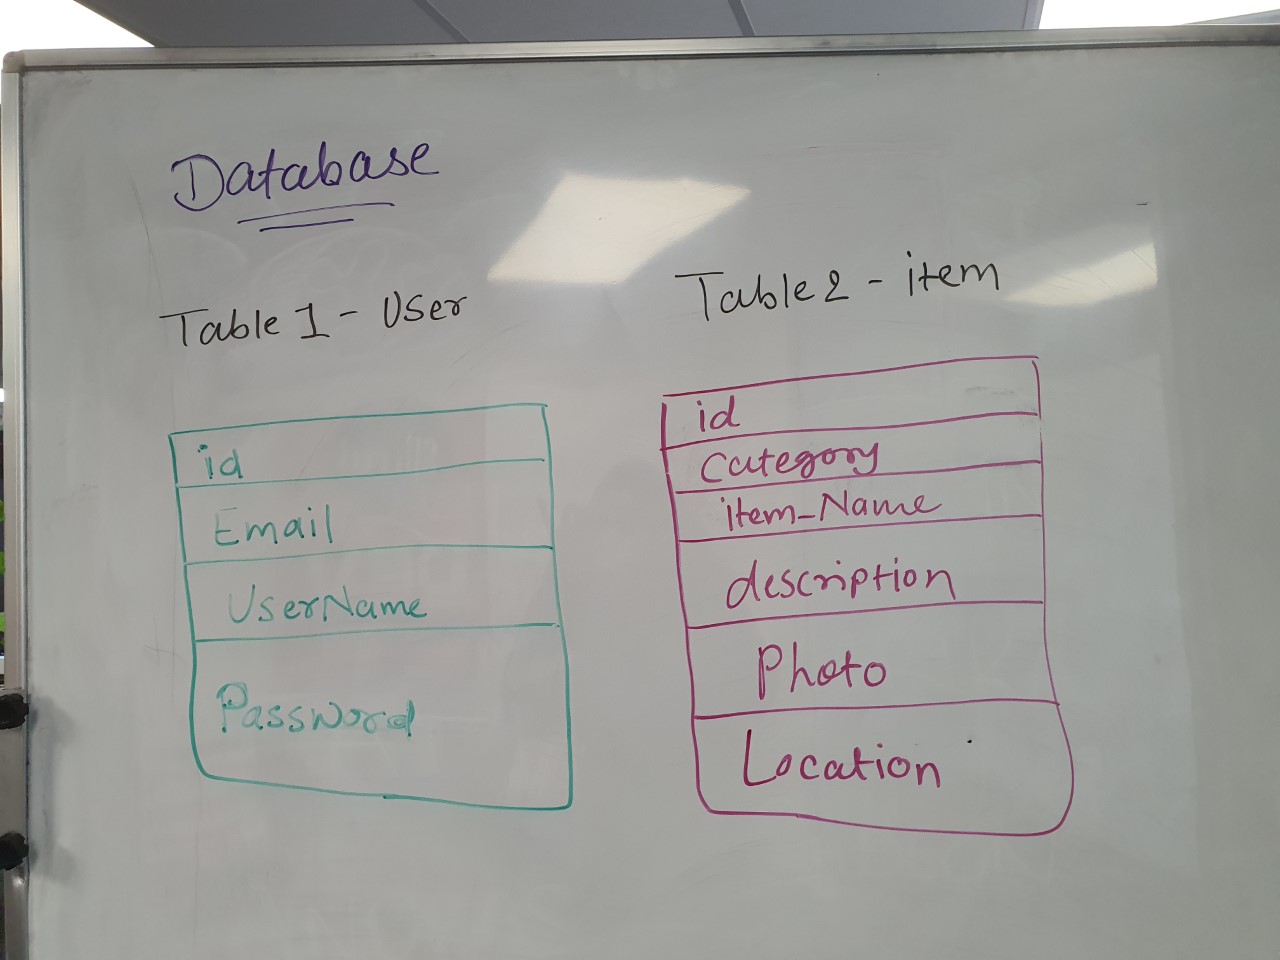 Database
Table 1 - User
id
Email
UserName
Password
Table 2 - item
id
Category
item_Name
description
Photo
Location